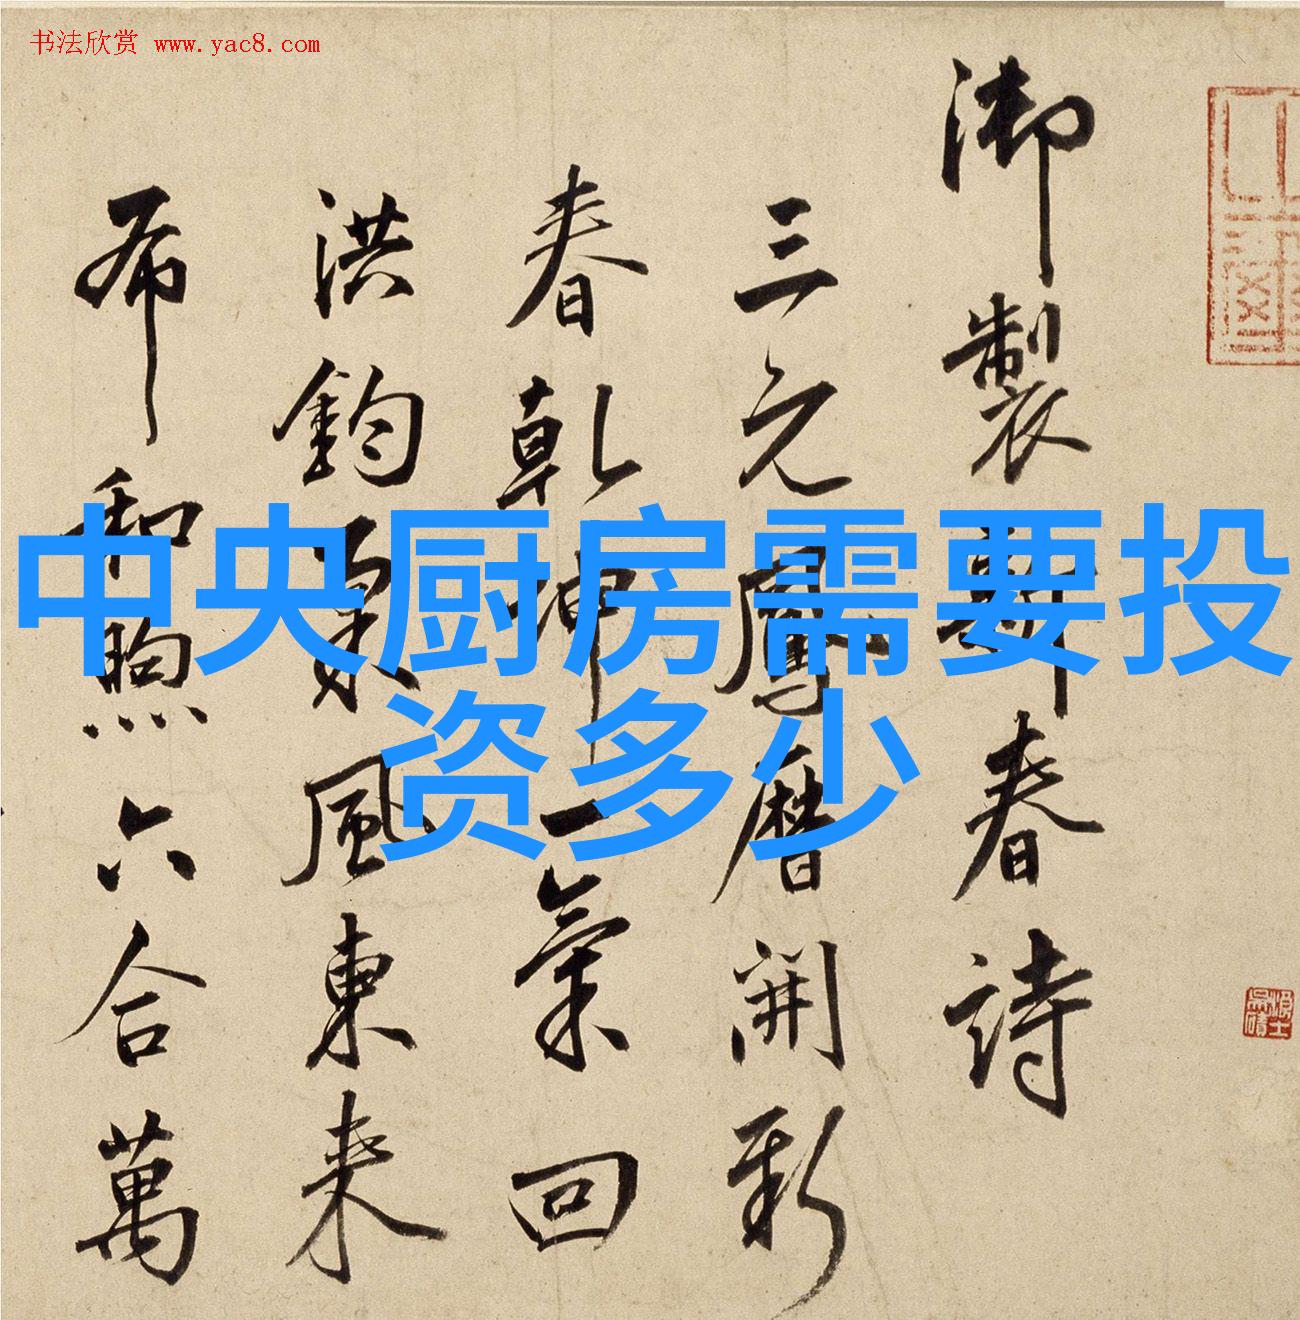 书法欣赏 www.yac8.com
中央厨房需要投
资多少
御製新春詩
三元鳳曆開新
春乾坤一氣回
洪鈞風東来
布和煦六合萬